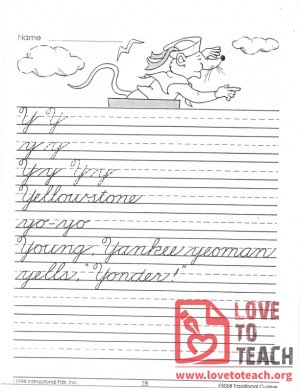 Name
Y Y
y y
Yy Yy
Yellowstone
yo-yo
Young, Yankee yeoman
yells, "Yonder!"
LOVE
TO
TEACH
www.lovetoteach.org
©1994 Instructional Fair, Inc.
28
IF5088 Traditional Cursive